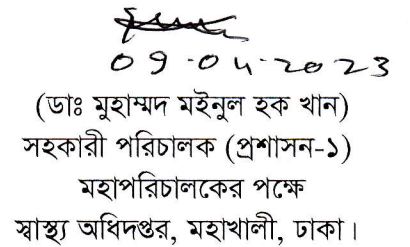 09.04.2023
(ডাঃ মুহাম্মদ মইনুল হক খান)
সহকারী পরিচালক (প্রশাসন-১)
মহাপরিচালকের পক্ষে
স্বাস্থ্য অধিদপ্তর, মহাখালী, ঢাকা।